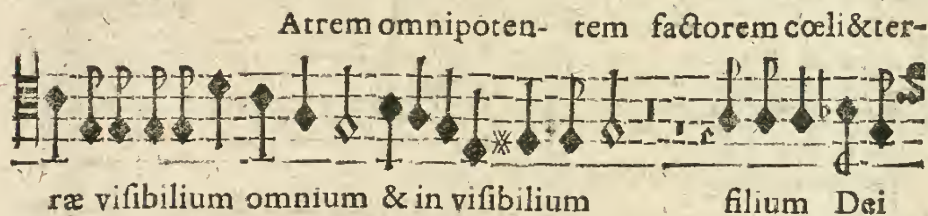 Atrem omnipoten- tem factorem cœli&ter-
ræ viſibilium omnium & in viſibilium filium Dei